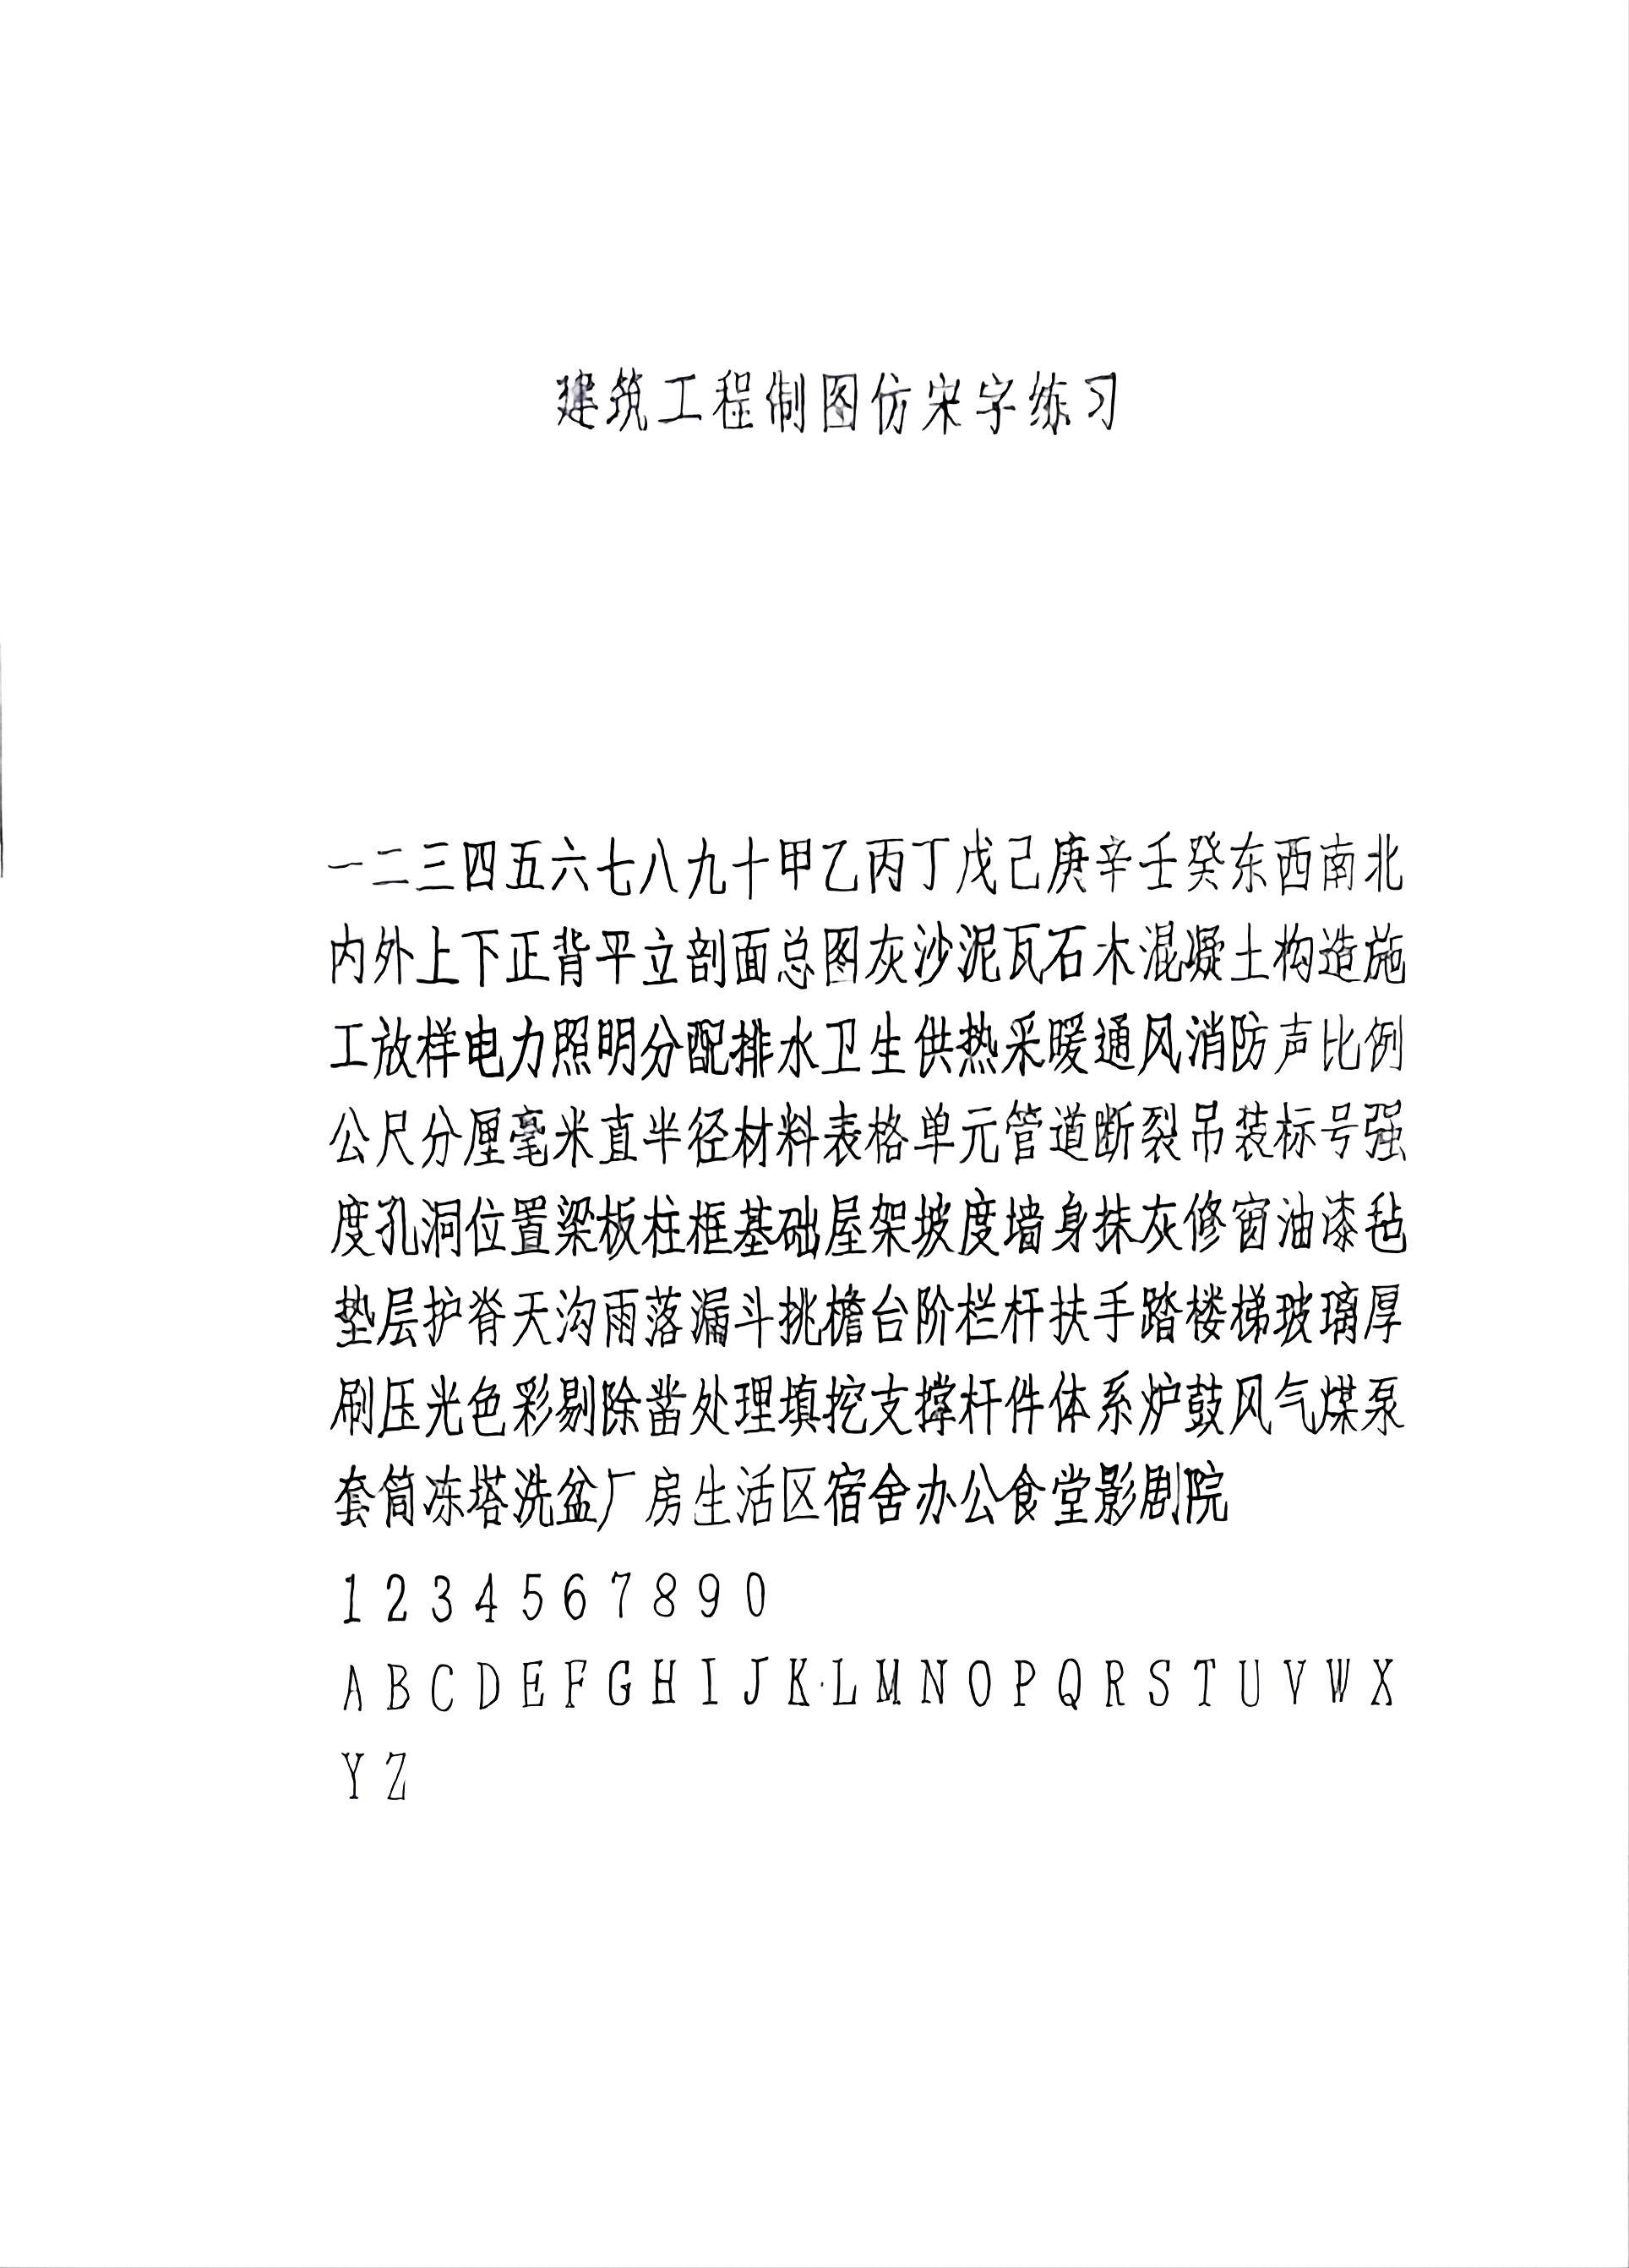 建筑工程制图仿宋字练习
一二三四五六七八九十甲乙丙丁戊己庚辛壬癸东西南北
内外上下正背平立剖面总图灰沙泥瓦石木混凝土构造施
工放样电力照明分配排水卫生供热采暖通风消防声比例
公尺分厘毫米直半径材料表格单元管道断裂吊装标号强
度孔洞位置梁板柱框基础屋架坡度墙身抹灰修窗油漆毡
垫层护脊天沟雨落漏斗挑檐台阶栏杆扶手踏楼梯玻璃厚
刷压光色彩剔除凿处理填挖支撑杆件体系炉鼓风气煤泵
套筒冻塔洗盆厂房生活区宿舍办公食堂影剧院
1 2 3 4 5 6 7 8 9 0
A B C D E F G H I J K L M N O P Q R S T U V W X
Y Z